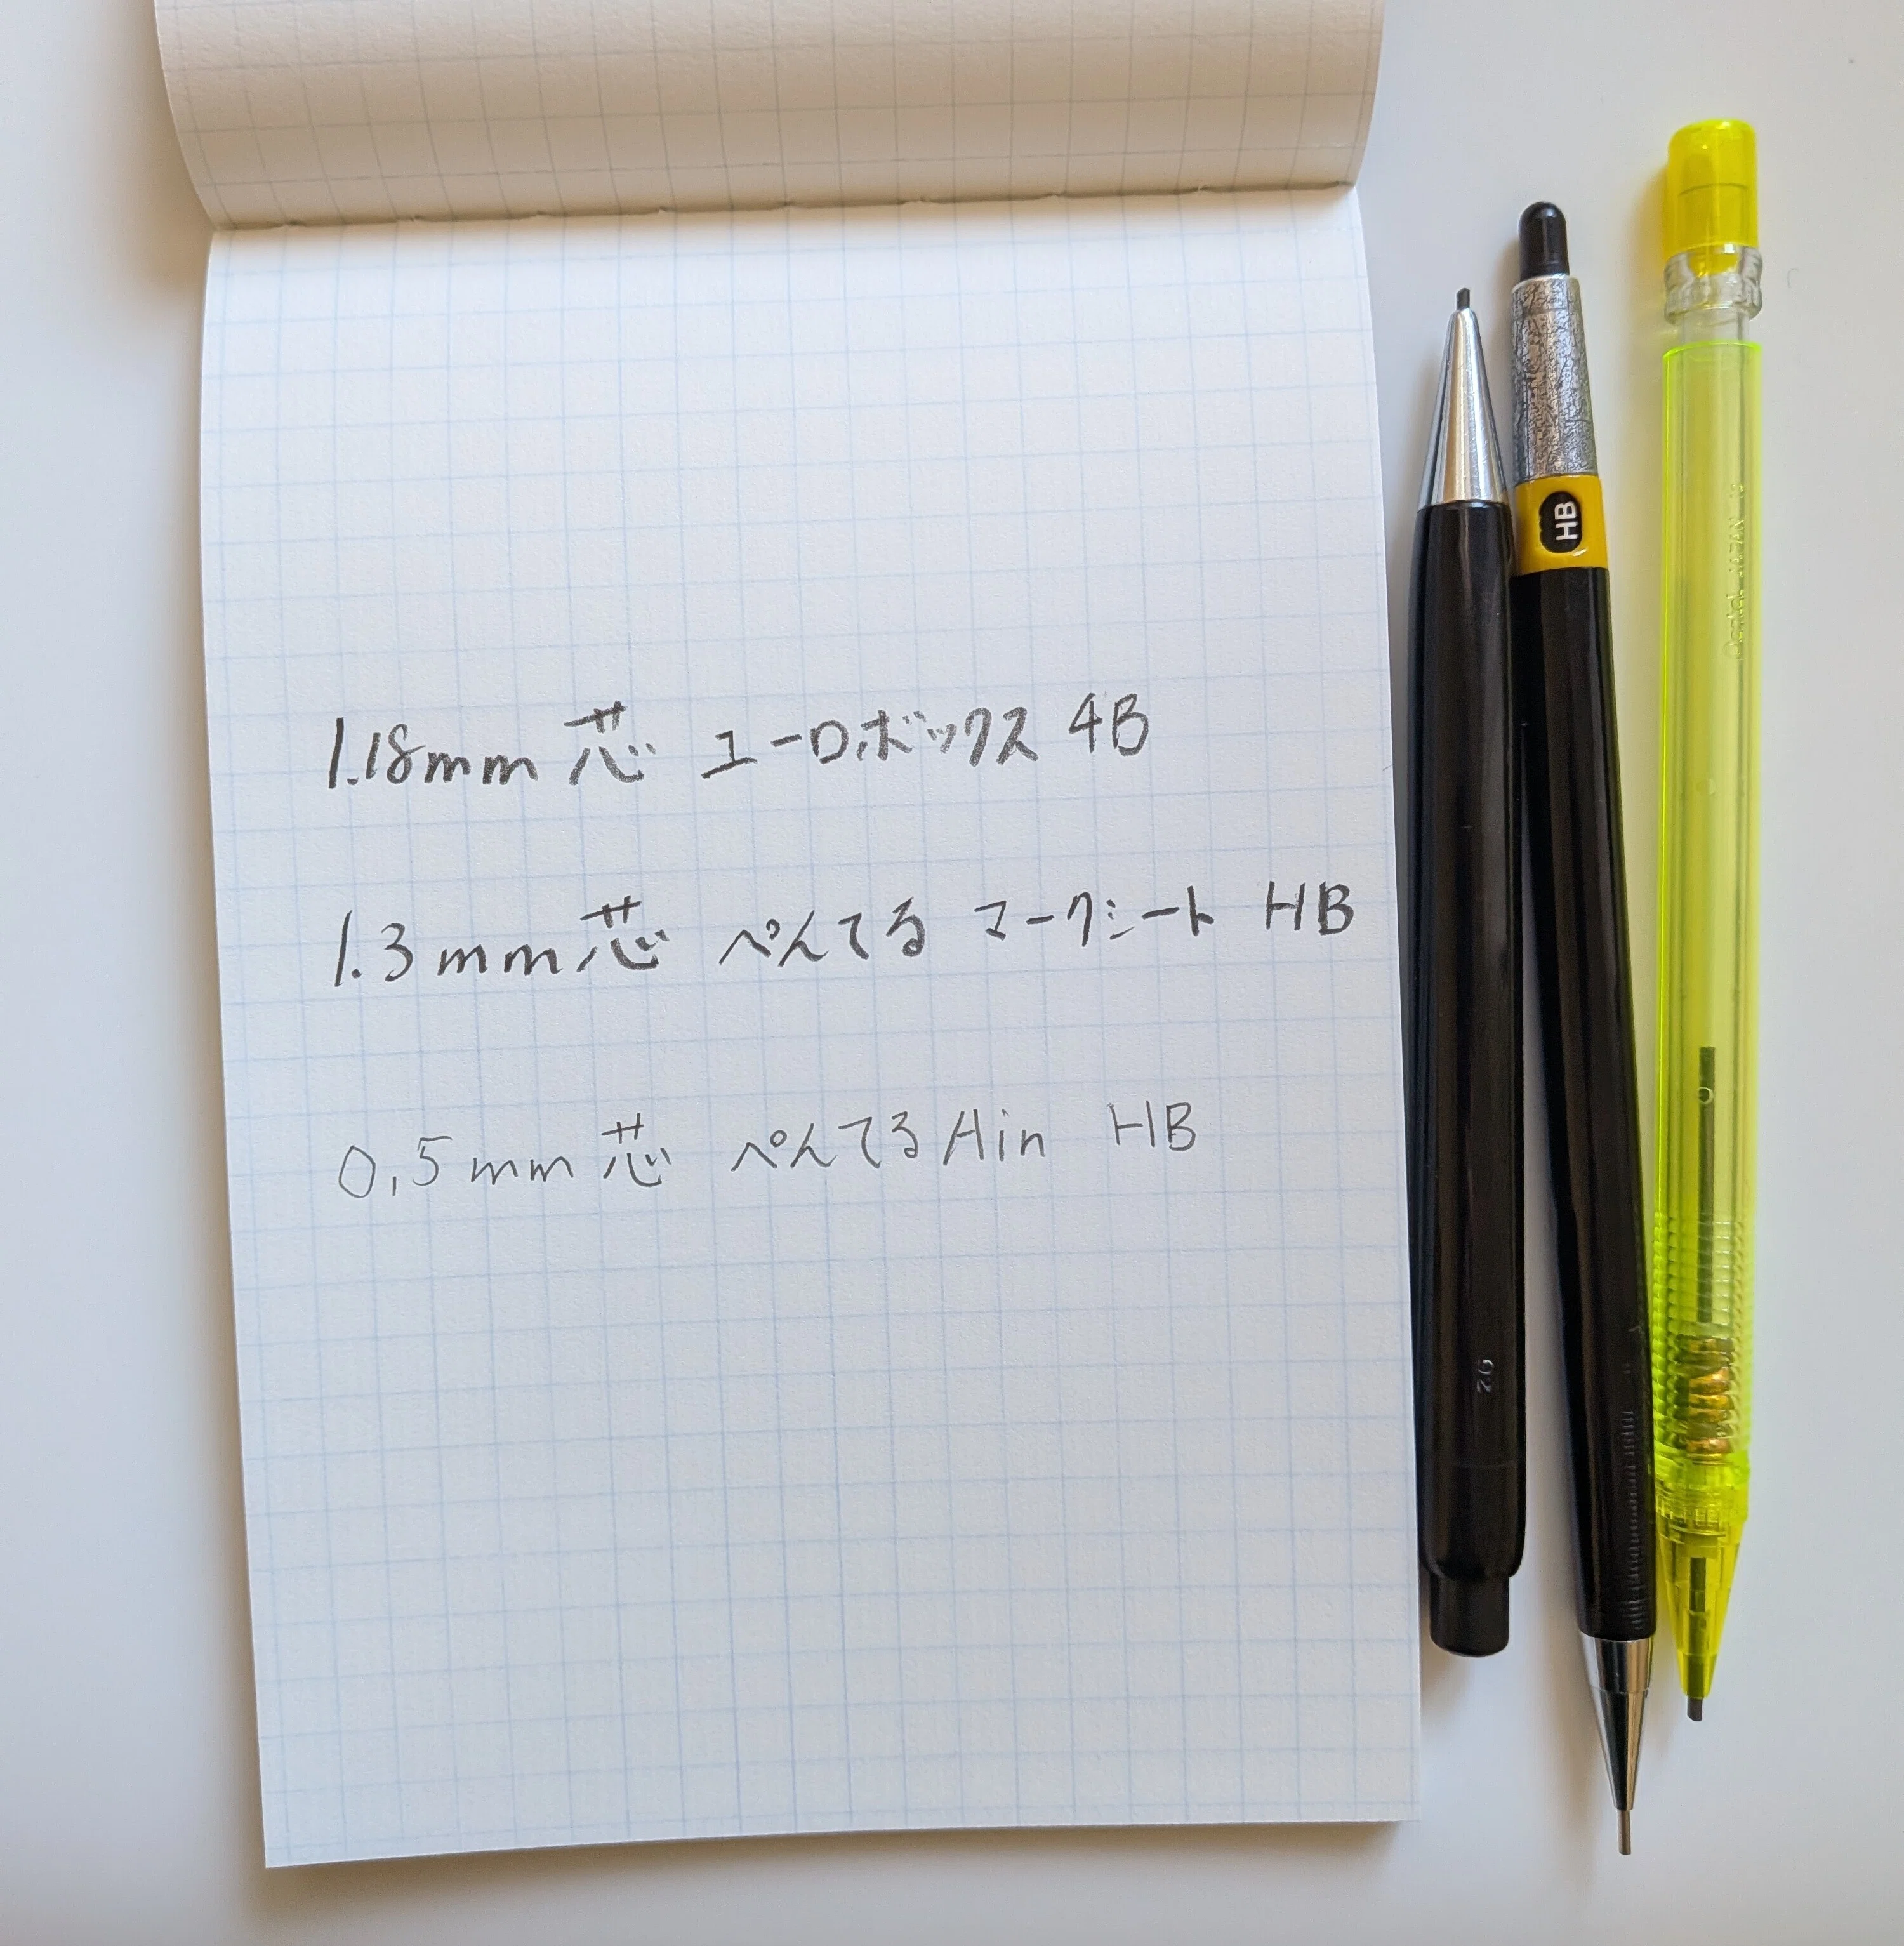 1.18mm 芯 ユーロボックス 4B
1.3mm芯 ぺんてる マークシート HB
0.5mm 芯 ぺんてる Ain HB
HB
Pentel JAPAN